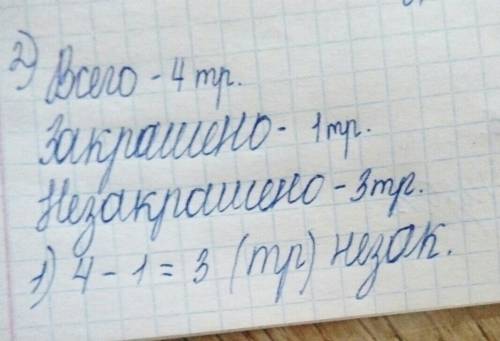 2) Всего - 4 тр.
Закрашено - 1 тр.
Незакрашено - 3 тр.
1) 4 - 1 = 3 (тр) незак.